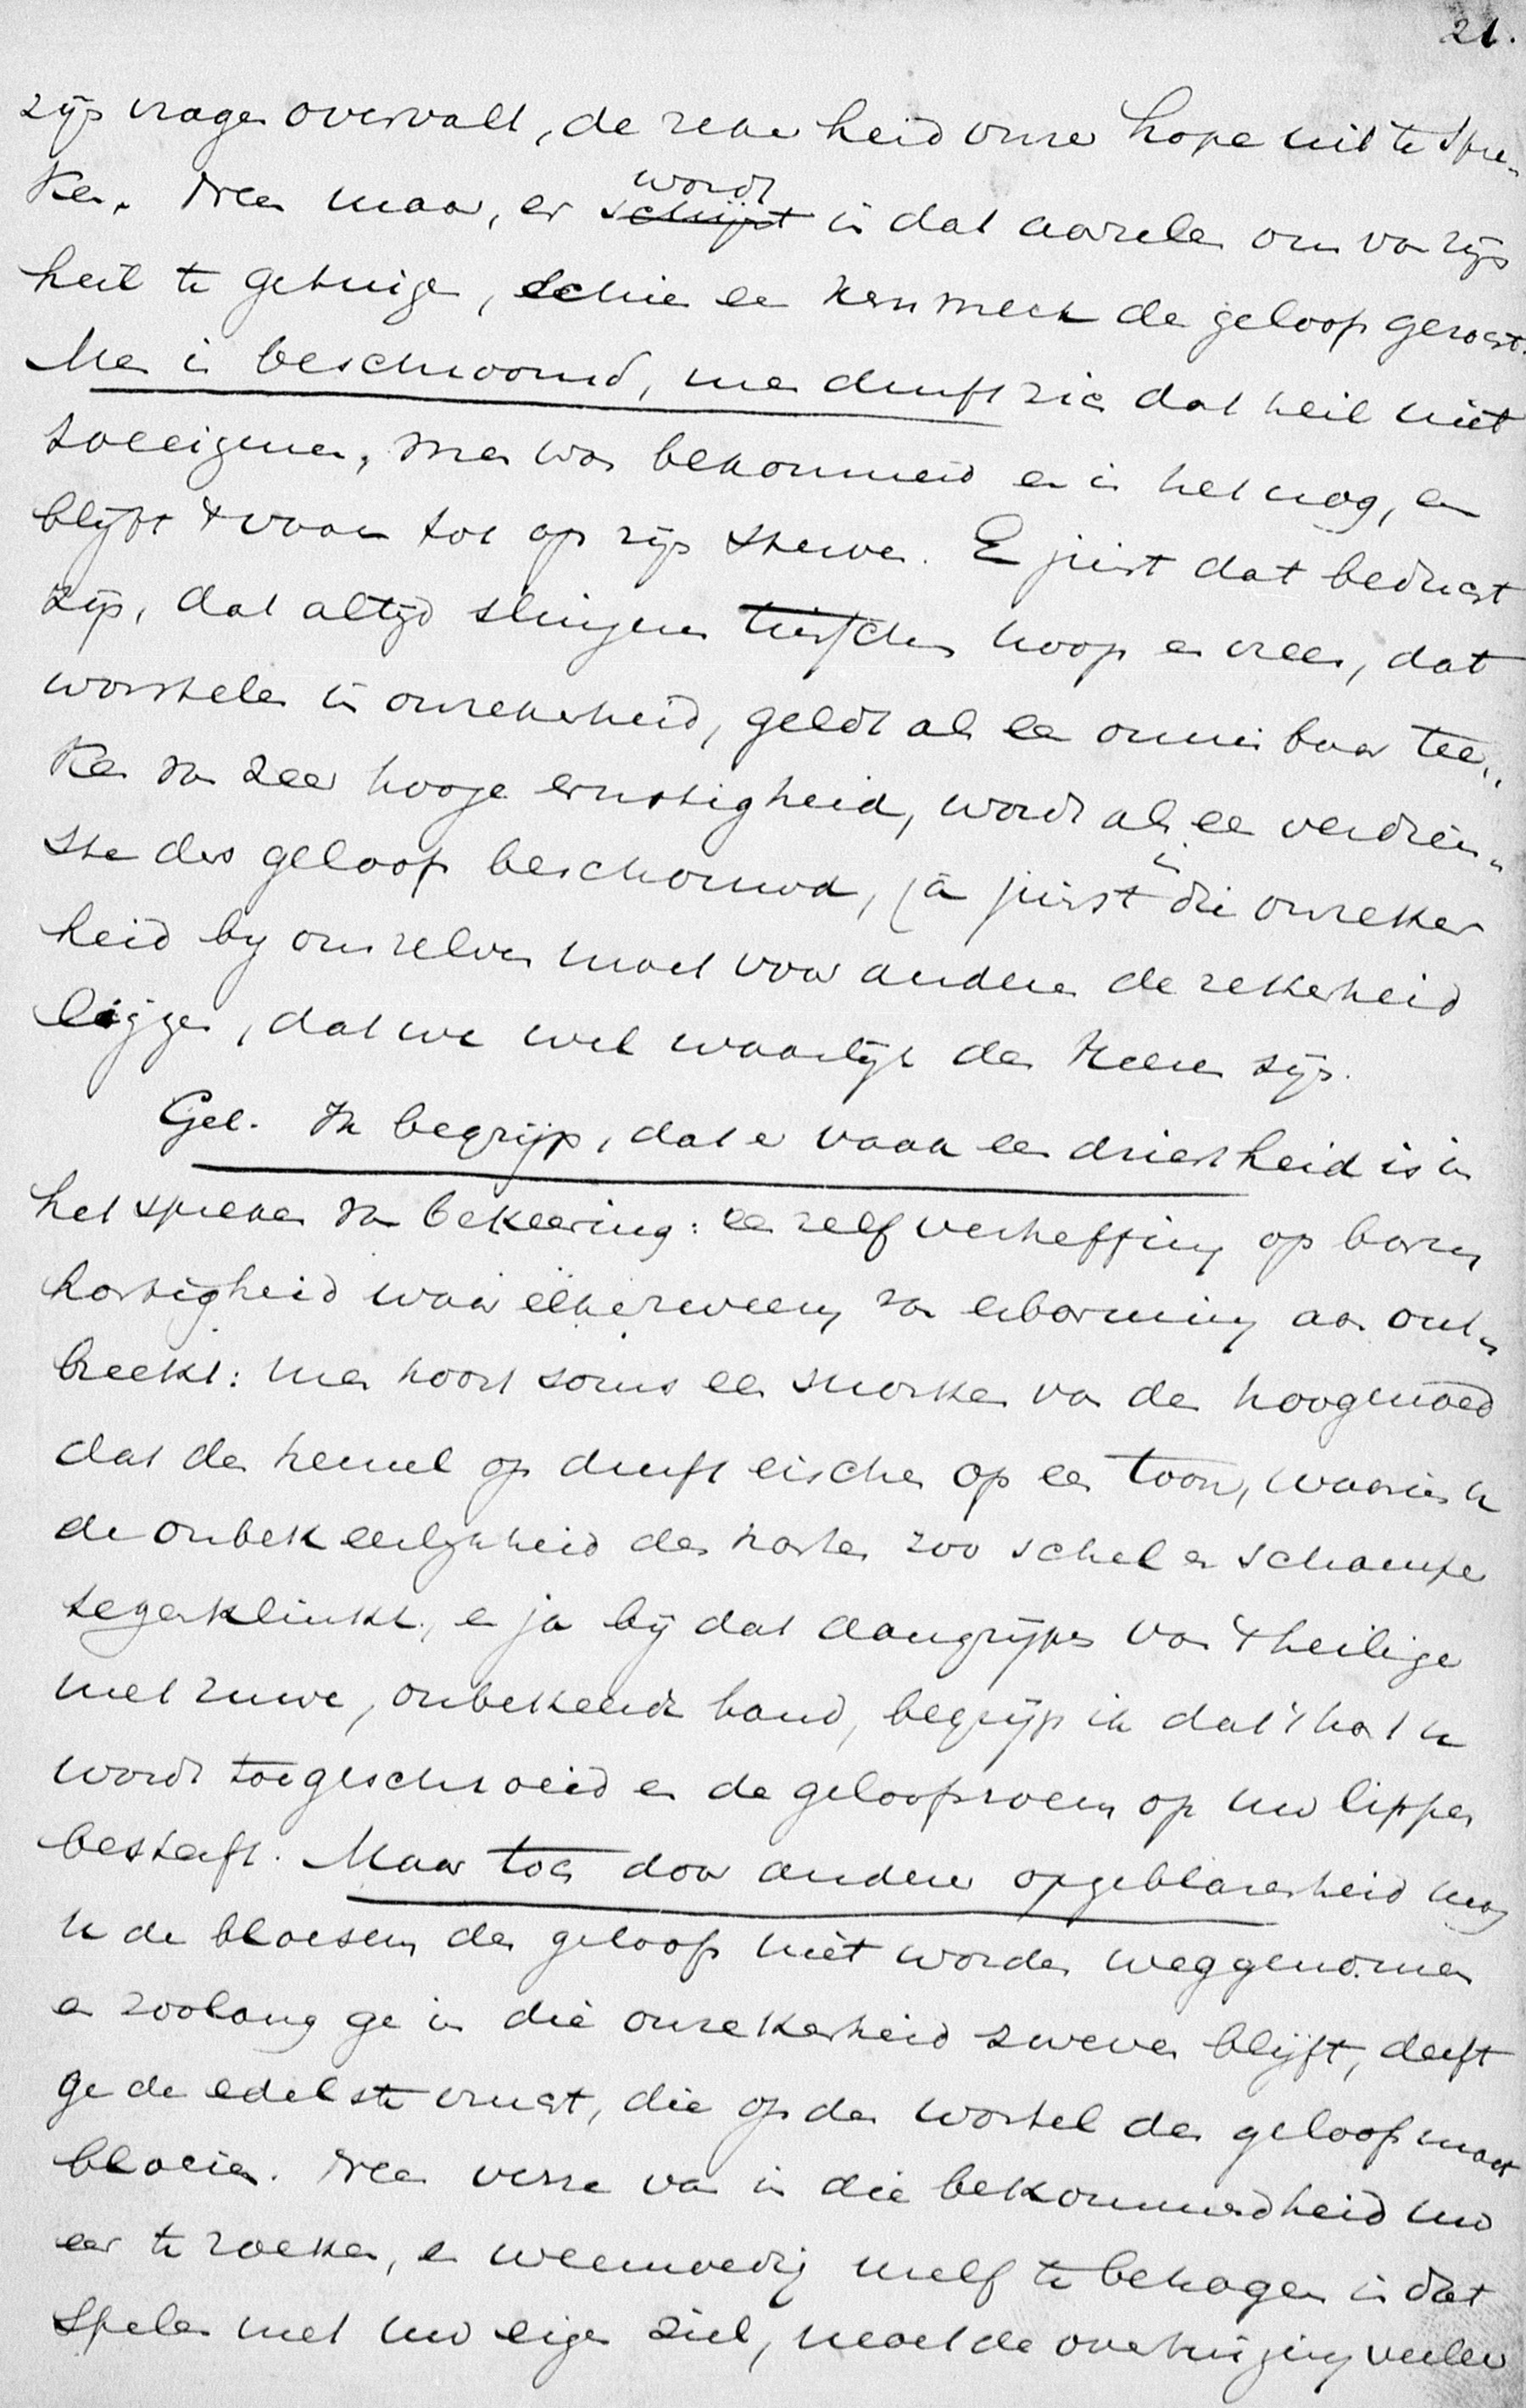 21.
zijn vragen overvalt, de zekerheid onzer hope uit te spre-
ken. Neen maar, er wordt
schijnt in dat aarzelen om van zijn
heil te getuigen, schier een kenmerk des geloofs gezocht.
Men is beschroomd, men durft zich dat heil niet
toeeigenen, men was bekommerd en is het nog, en
blijft 't vaak tot op zijn sterven. En juist dat beducht
zijn, dat altijd slingeren tusschen hoop en vrees, dat
worstelen in onzekerheid, geldt als een onmisbaar tee-
ken van zeer hooge ernstigheid, wordt als een verdien-
ste des geloofs beschouwd, ja juist in die onzeker
heid bij ons zelven moet voor anderen de zekerheid
liggen, dat we wel waarlijk des Heeren zijn.
Gel. Ik begrijp, dat er vaak een driestheid is in
het spreken van bekeering: een zelfverheffing op barm
hartigheid waar elke zweem van erbarming aan ont-
breekt: men hoort soms een snorken van den hoogmoed
dat den hemel op durft eischen op een toon, waarin u
de onbekeerlijkheid des harten zoo schel en schamper
tegenklinkt, en ja bij dat aangrijpen van 't heilige
met ruwe, onbekeerde hand, begrijp ik dat 't hart u
wordt toegeschroeid en de geloofsroem op uw lippen
besterft. Maar toch door anderer opgeblazenheid mag
u de bloesem des geloofs niet worden weggenomen
en zoolang ge in die onzekerheid zweven blijft, derft
ge de edelste vrucht, die op den wortel des geloofs moet
bloeien. Neen verre van in die bekommerdheid uw
eer te zoeken, en weemoedig uzelf te behagen in dat
spelen met uw eigen ziel, moet de overtuiging veeleer